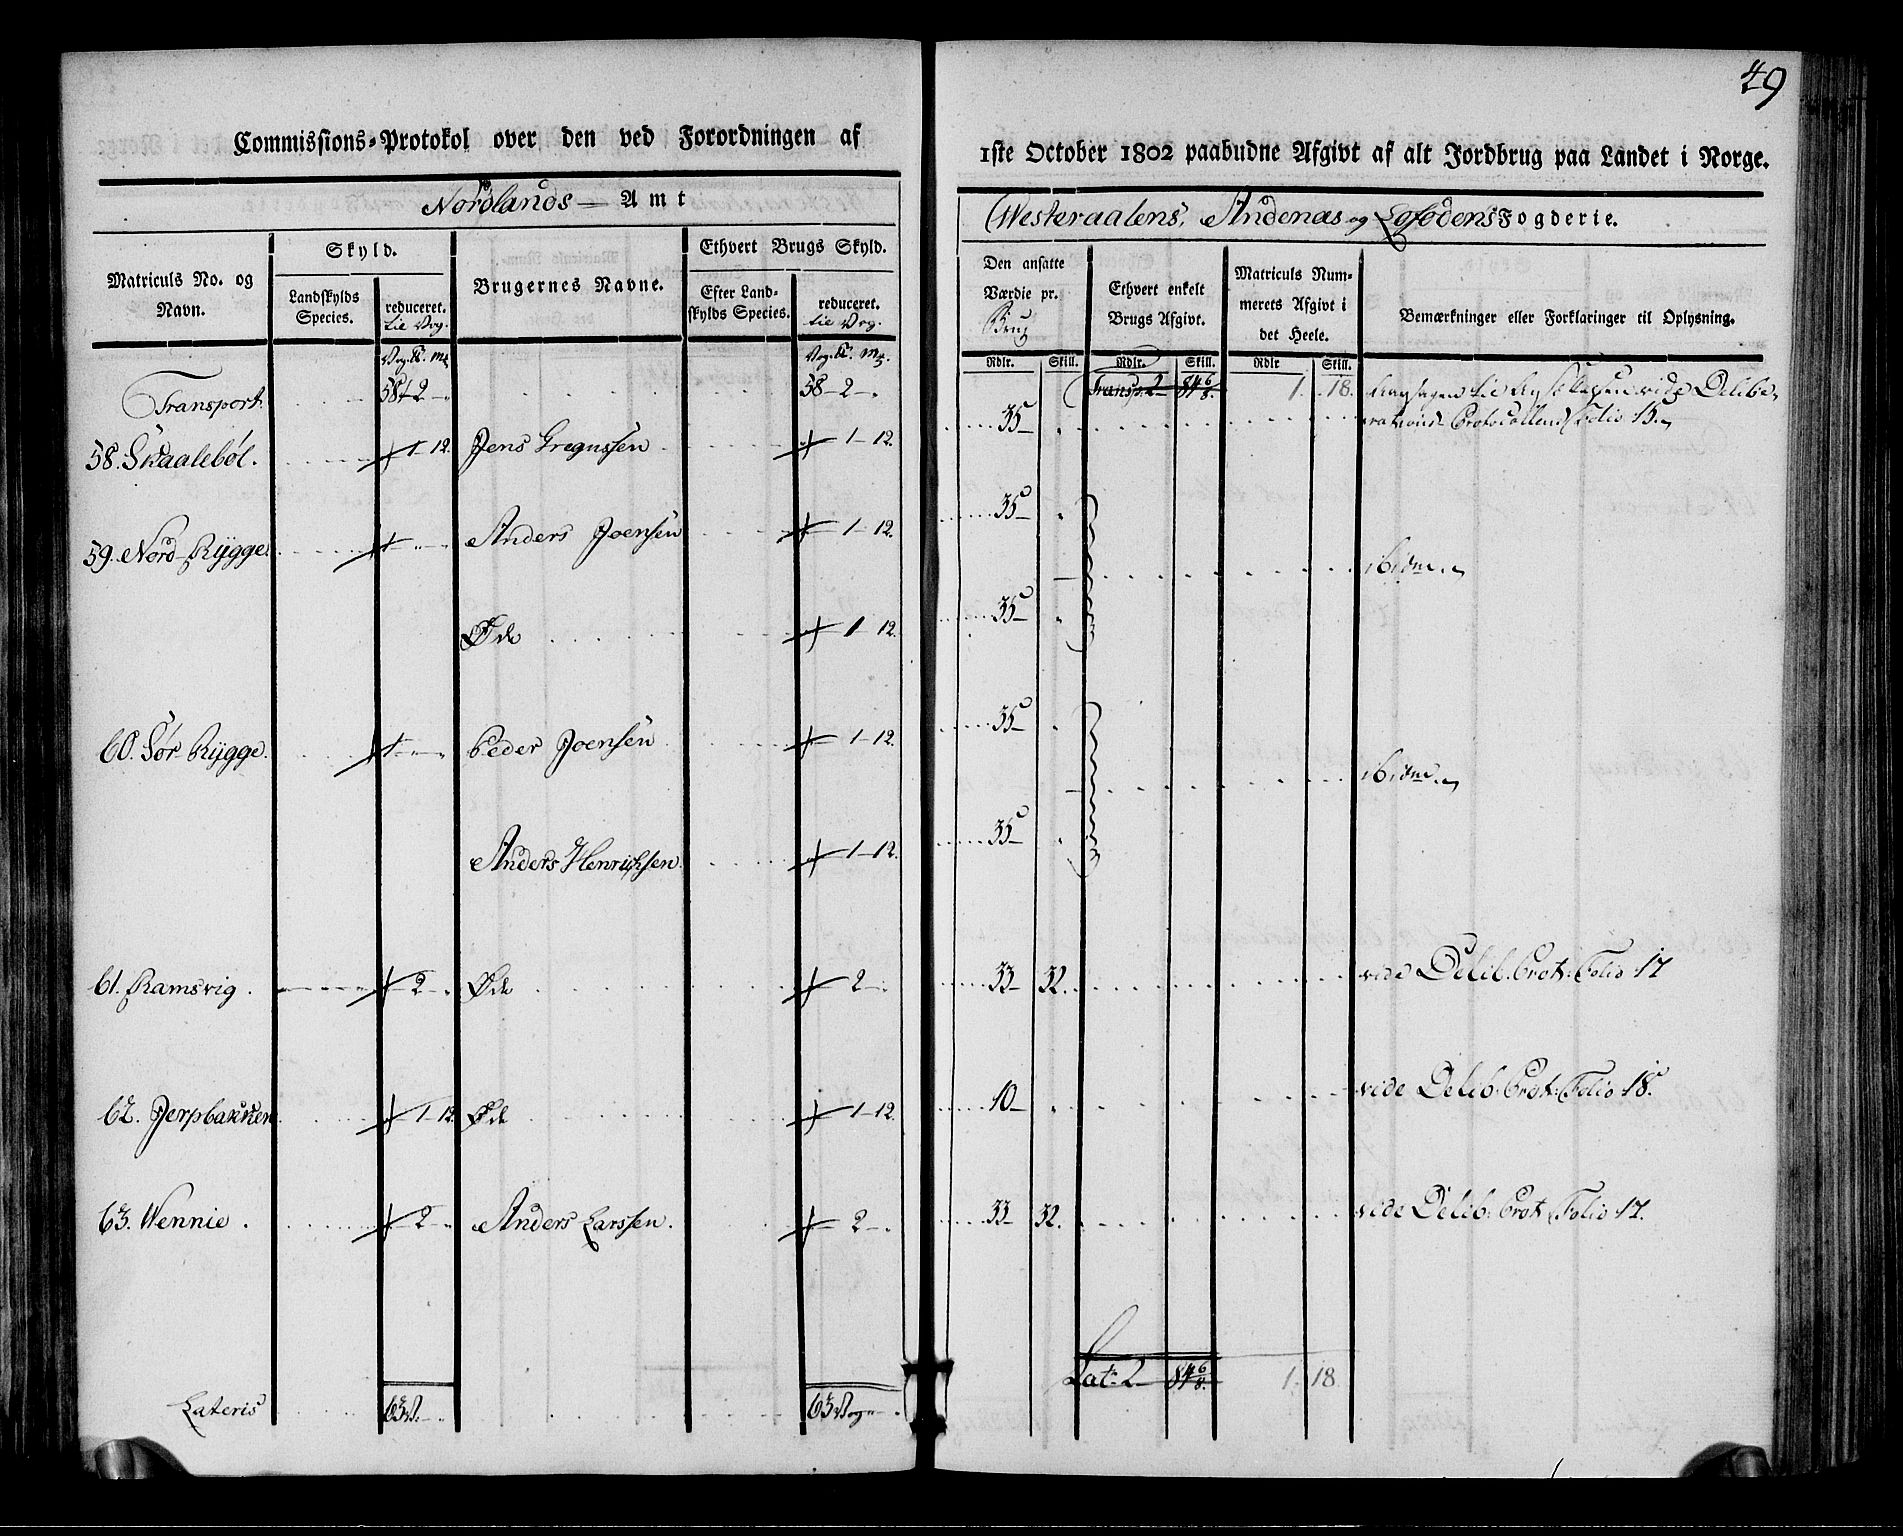 49
Commissions-Protokol over den ved Forordningen af
1ste October 1802 paabudne Afgivt af alt Jordbrug paa Landet i Norge.
Nordlands Amt
Westeraalens, Andenæs og Lofodens Fogderie.
Matriculs No. og Navn.
Skyld.
Landskylds Species.
reduceret. tie Vog.
Brugernes Navne.
Ethvert Brugs Skyld.
Efter Landskylds Species.
reduceret. tie Vog.
Den ansatte Værdie pr. Brug
Ethvert enkelt Brugs Afgivt.
Matriculs Nummerets Afgivt i det Heele.
Bemærkninger eller Forklaringer til Oplysning.
Rdlr. Skill. Rdlr. Skill. Rdlr Skill.
Transport 58 2 58 - 2 Transp. 2 1. 18. vide Delibe-
rations Protocollens Folio 15.
58. Skaalebøl. 1 - 12. Jens Gregussen 1 - 12. 35
59. Nord-Rygge Anders Joensen 1 - 12. 35
ibidm.
Øde 1 - 12. 35
60. Sør Rygge. Peder Joensen 1 - 12. 35
ibidm.
Anders Henrichsen 1 - 12. 35
61. Ramsvig 2 Øde 2 33 32. vide Delib. Prot: Folio 17
62. Jerpbakken 1 - 12. Øde 1 - 12. 10 vide Delib: Prot: Folio 18.
63. Wennie 2 Anders Larssen. 2 33 32. vide Delib: Prot: Folio 17.
Lateris 63 V. 63 Vog Lat: 2 1 18